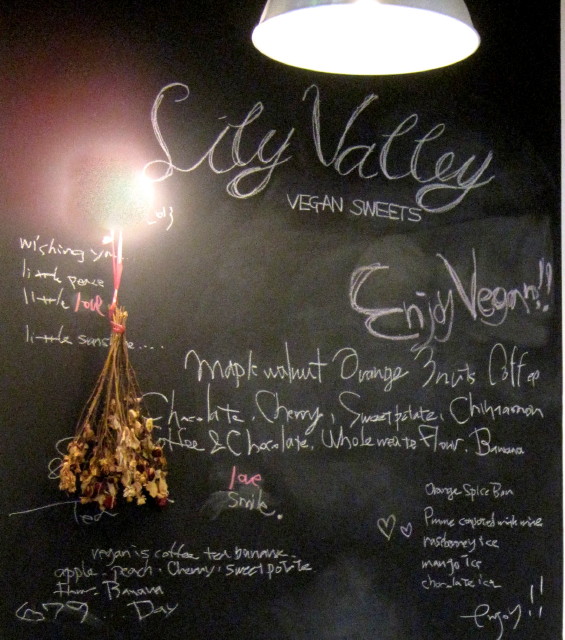 Lily Valley
VEGAN SWEETS
wishing
little peace
little love
little
Enjoy Vegan!!
Maple walnut Orange 3nuts Coffee
Chocolate, Cherry, Sweet potate, Chinnamon
Coffee & Chocolate, Whole weats Flour, Banana
love
Smile.
Tea
Orange Spice Ban
Prune wine
raspberry ice
mango ice
chocolate ice
vegan is coffee tea banana
apple. peach. Cherry. sweet potate
Flour. Banana
Day
enjoy!!